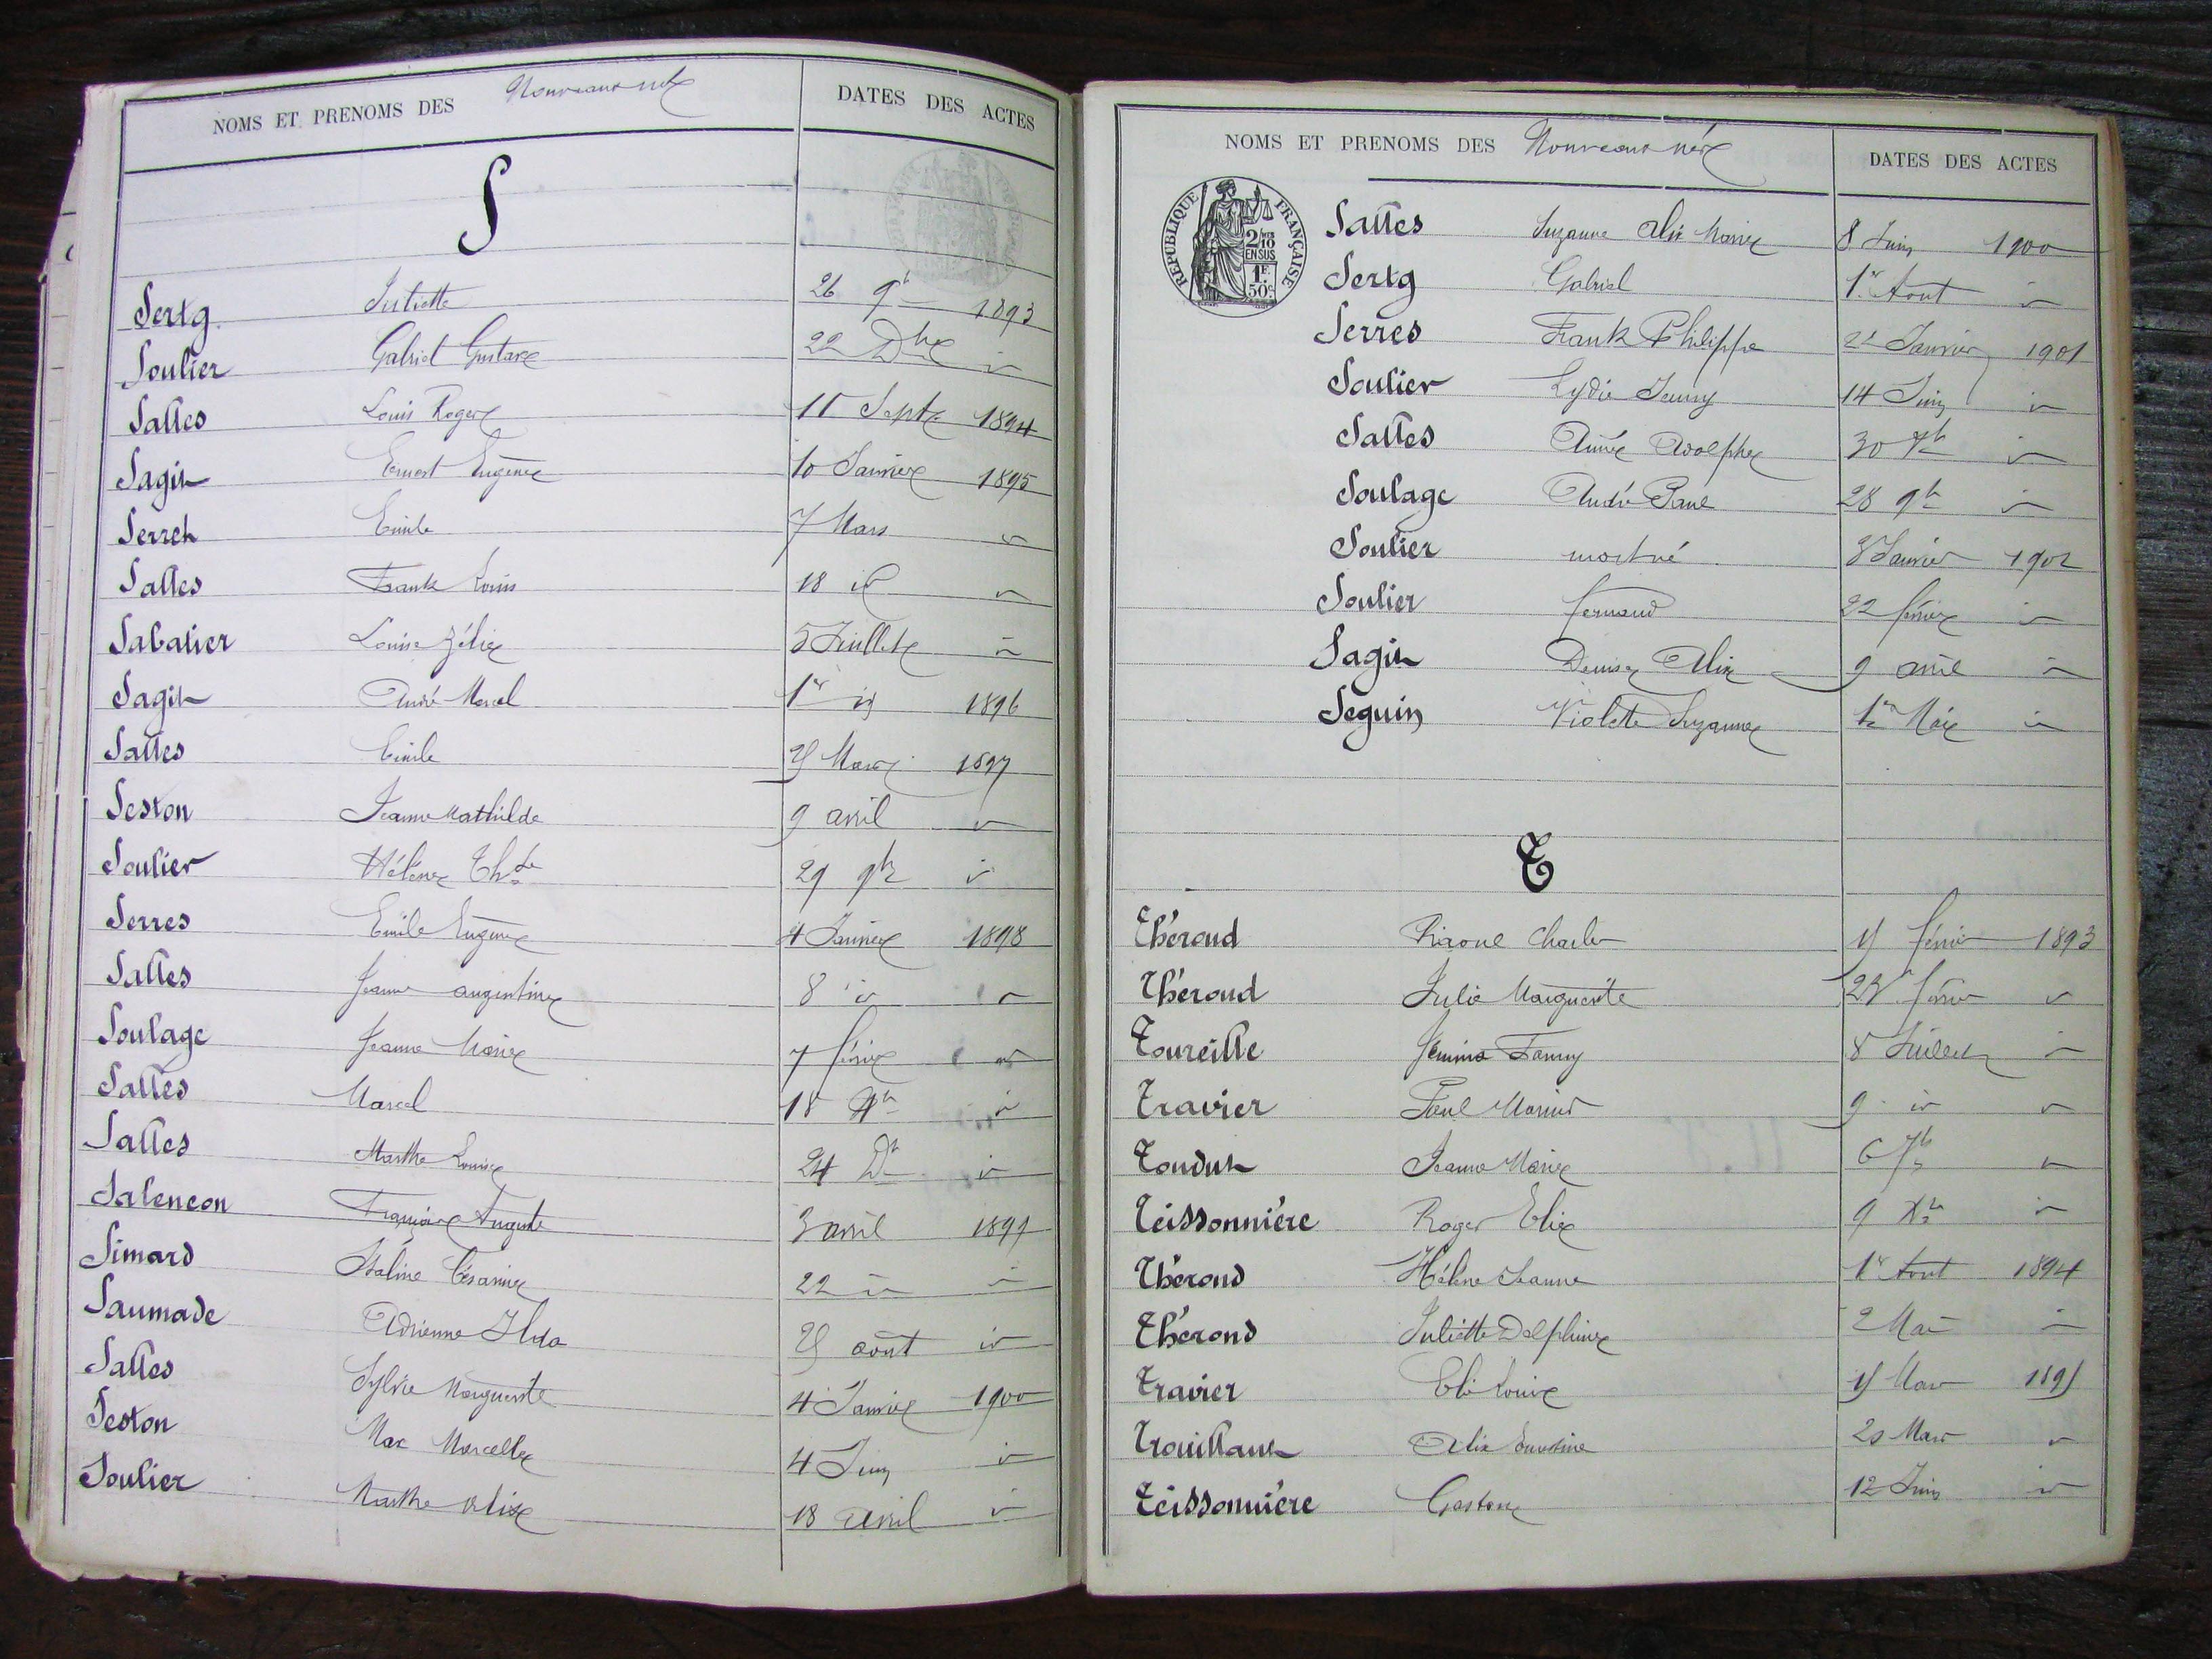 NOMS ET PRENOMS DES Nouveaux nés DATES DES ACTES
S
Sertg Juliette 26 9b 1893
Soulier Gabriel Gustave 22 Dbre id
Salles Louis Roger 11 Septe 1894
Sagit Ernest Eugène 10 Janvier 1895
Serret Emile 7 Mars id
Salles Frank Louis 18 id id
Sabatier Louise Zélie 5 Juillet id
Sagit André Marcel 1er id 1896
Salles Emile 25 Mars 1897
Seston Jeanne Mathilde 9 avril id
Soulier Hélène 29 9b id
Serres Emile Eugène 4 Janvier 1898
Salles Jeanne augustine 8 id id
Soulage Jeanne Marie 7 février id
Salles Marcel 18 id
Salles Marthe Louise 24 Db id
Salencon Françoise Auguste 3 avril 1899
Simard Italine Césarine 22 id id
Saumade Adrienne Ilda 25 août id
Salles Sylvie Marguerite 4 Janvier 1900
Seston Max Marcelle 4 Juin id
Soulier Marthe Alix 18 avril id
NOMS ET PRENOMS DES Nouveaux nés DATES DES ACTES
RÉPUBLIQUE FRANÇAISE
2/10
EN SUS
1F
50c
Salles Suzanne Alix Marie 8 Juin 1900
Sertg Gabriel 1er Aout id
Serres Frank Philippe 21 Janvier 1901
Soulier Lydie Jenny 14 Juin id
Salles Aimé Adolphe 30 id
Soulage André Paul 28 9b id
Soulier mort né 8 Janvier 1902
Soulier fernand 22 février id
Sagit Denise Alix 9 avril id
Seguin Violette Suzanne 1er Mai id
T
Thérond Raoul Charles 15 février 1893
Thérond Julie Marguerite 25 février id
Toureille Jémima Fanny 8 Juillet id
Travier Paul Marius 9 id id
Tondut Jeanne Marie 6 7b id
Teissonnière Roger Elie 9 Xb id
Thérond Hélène Jeanne 1er Aout 1894
Thérond Juliette Delphine 2 Mai id
Travier Elie Louis 15 Mars 1895
Trouillant Alix 20 Mars id
Teissonnière Gaston 12 Juin id